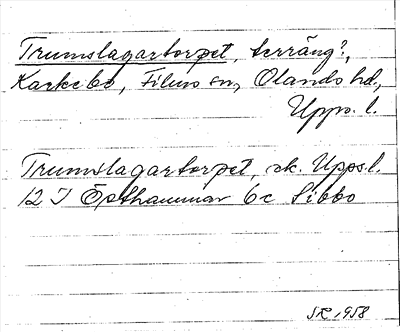 Trumslagartorpet, terräng?,
Karkebo, Films sn, Olands hd,
Upps. l.
Trumslagartorpet, ek. Upps. l.
12 I Östhammar 6c Sibbo
1958